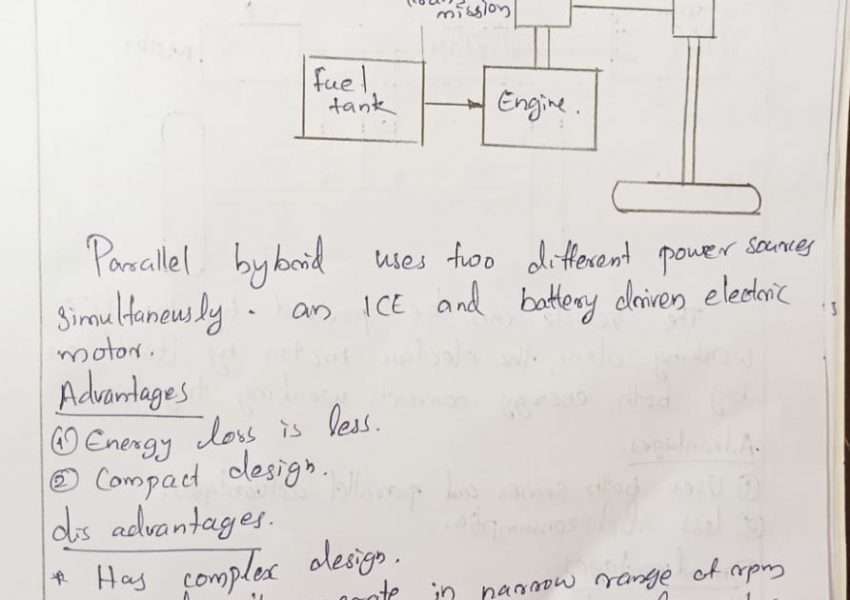 mission
fuel
tank
Engine.
Parallel hybrid uses two different power sources
simultaneously. an ICE and battery driven electric
motor.
Advantages
① Energy loss is less.
② Compact design.
dis advantages.
* Has complex design.
in narrow range of rpm